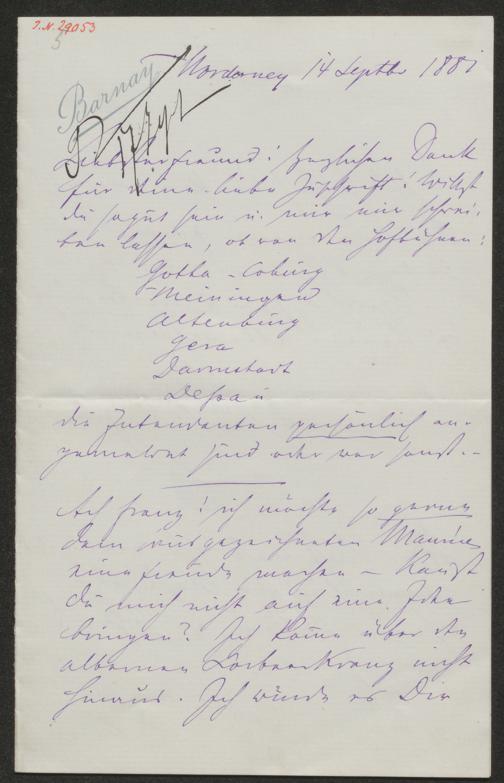 J.N. 29053
5
Barnay
Norderney 14 Septbr 1881
Liebster Freund! Herzlichen Dank
für Deine liebe Zuschrift! Willst
du so gut sein u. mir nur schrei-
ben lassen, ob von den Hofbühnen:
Gotha-Coburg
Meiningen
Altenburg
Gera
Darmstadt
Dessau
die Intendanten persönlich an-
gemeldet sind oder wer sonst. -
Ach Franz! ich möchte so gerne
dem ausgezeichneten Manne
eine Freude machen - Kannst
du mich nicht auf eine Idee
bringen? Ich komme über den
albernen Lorbeerkranz nicht
hinaus. Ich würde es Dir